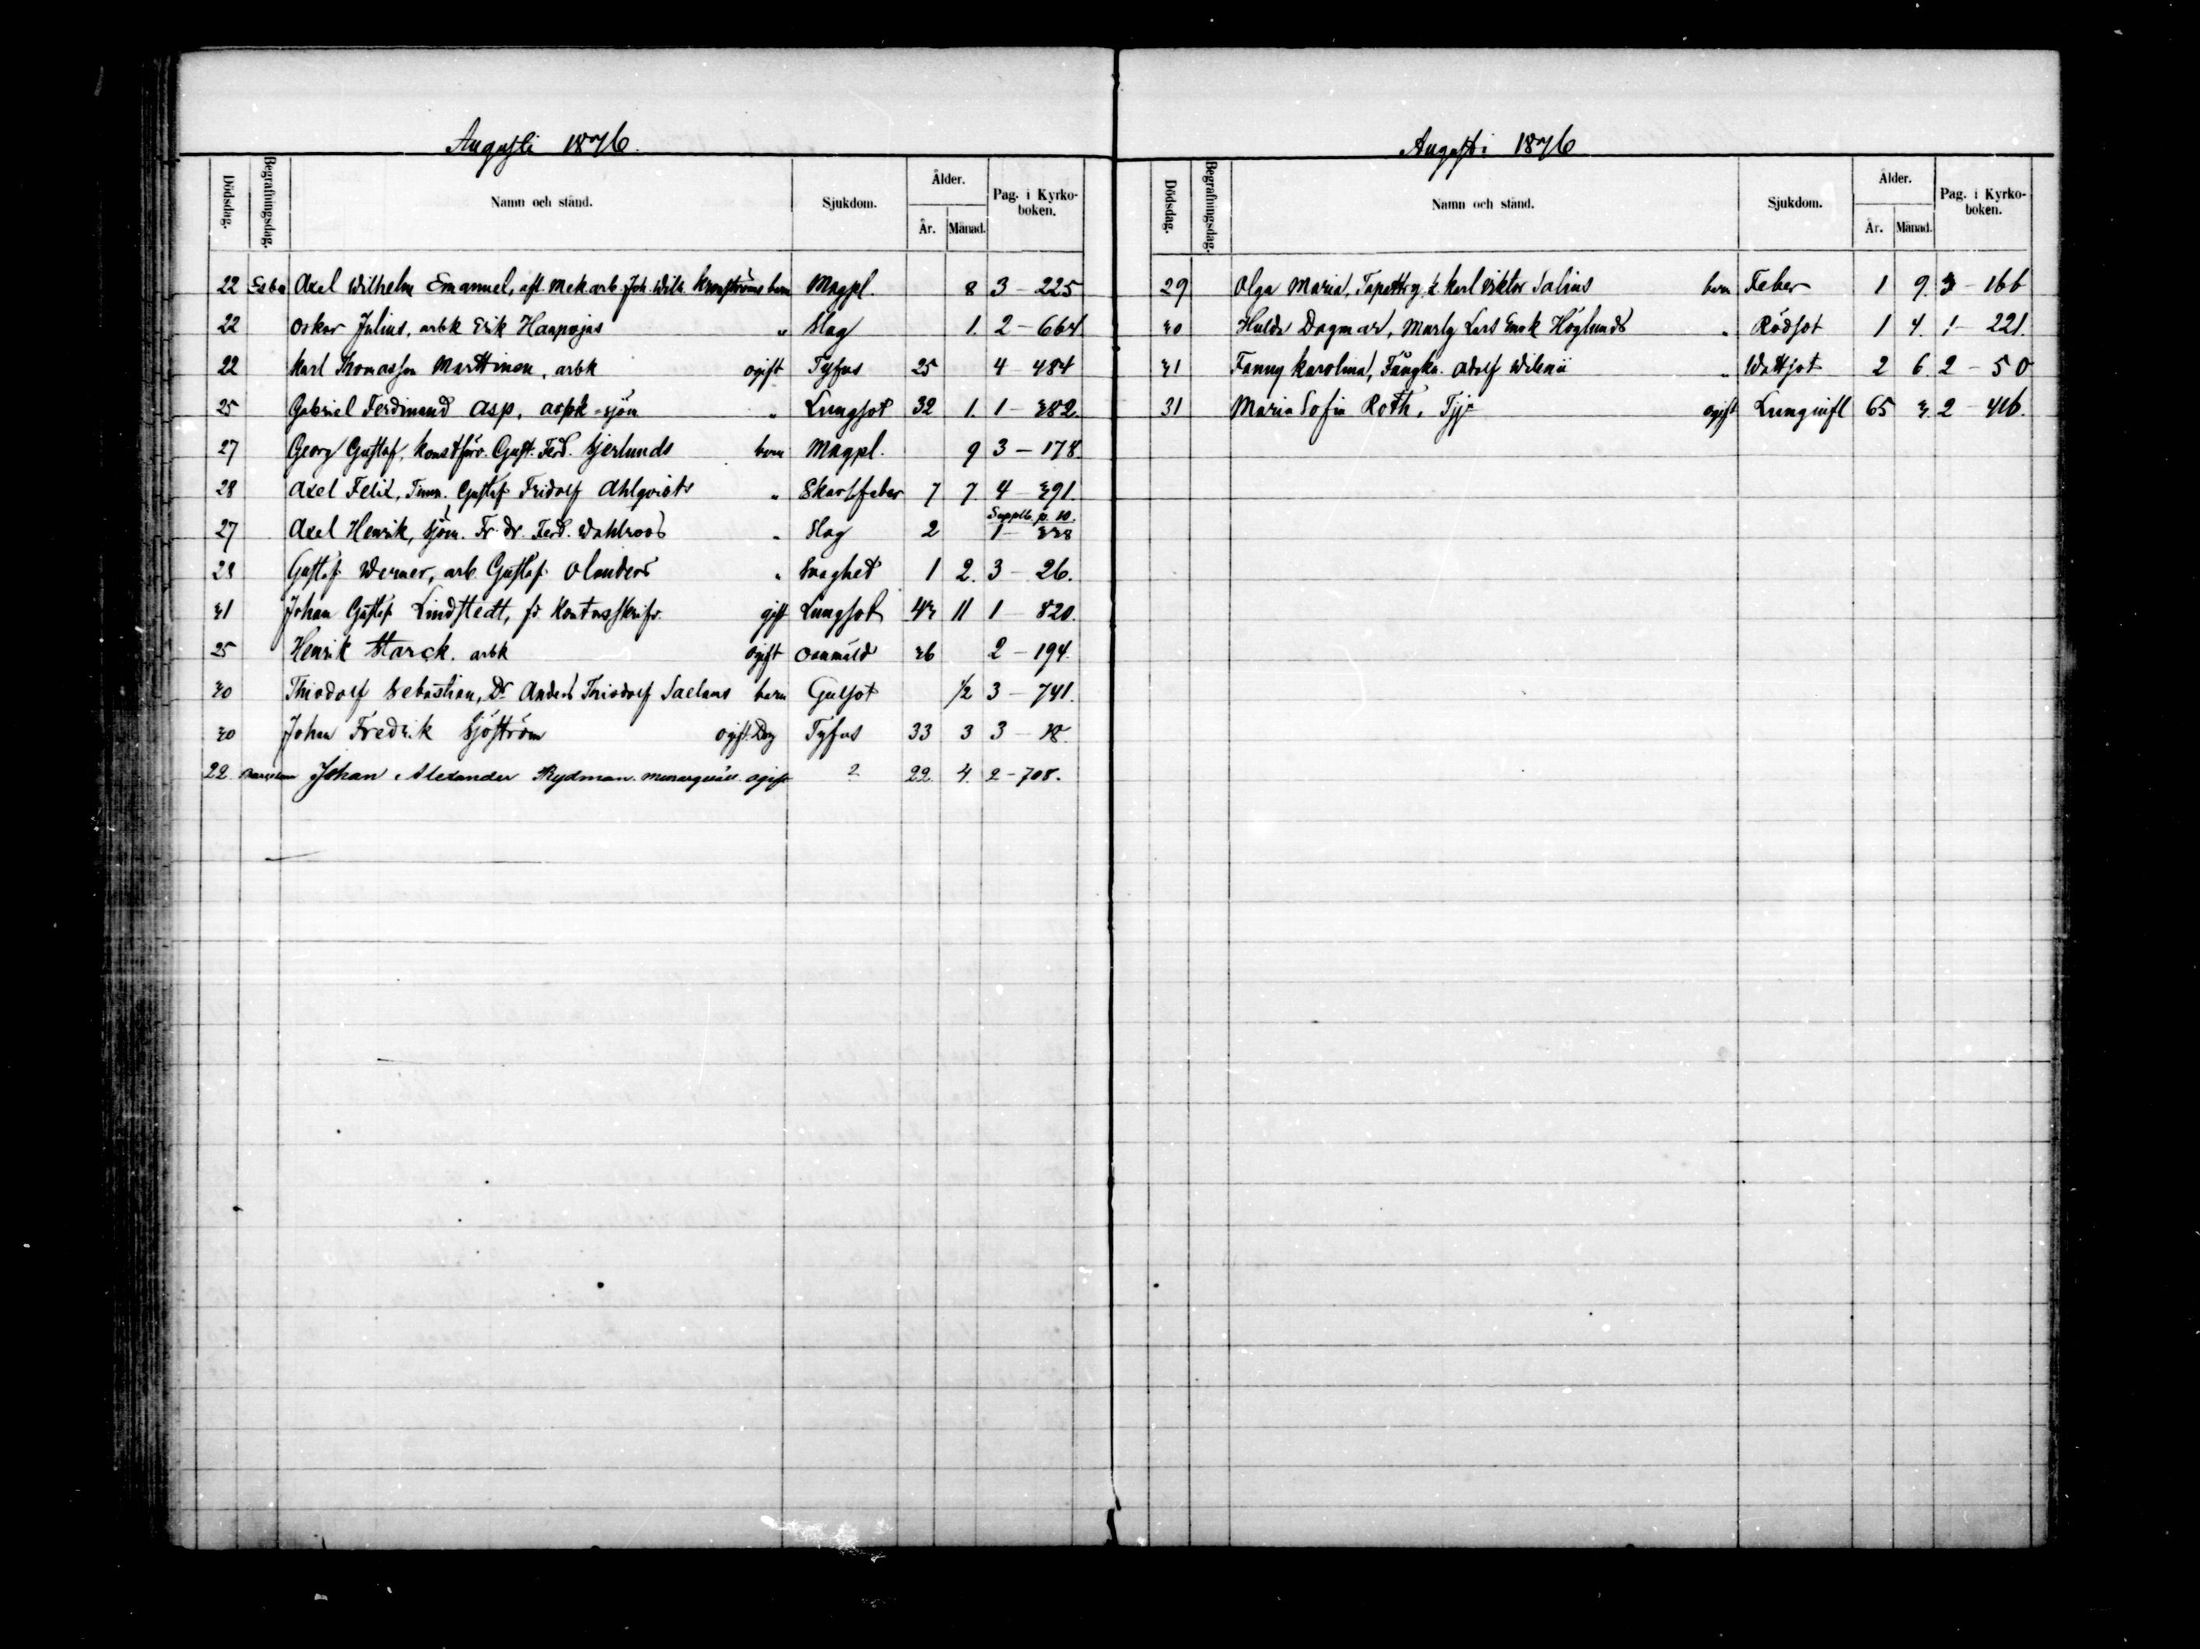 Augusti 1876.
Dödsdag. Begrafningsdag. Namn och stånd. Sjukdom. Ålder. År. Månad. Pag. i Kyrko-boken.
22 Esbo Axel Wilhelm Emanuel, afl. Mek.arb. Joh. Wilh. Kronströms barn Magpl. 8 3 - 225
22 Oskar Julius, arbk Erik Haapojas " Slag 1. 2 - 664
22 Karl Thomasson Marttinen, arbk ogift Tyfus 25 4 - 484
25 Gabriel Ferdinand Asp, sjöm " Lungsot 32 1. 1 - 382.
27 Georg Gustaf, Konstförv. Gust. Ferd. Bjerlunds barn Magpl. 9 3 - 178.
28 Axel Felix, Timm. Gustaf Fridolf Ahlqvists " Skarlfeber 7 7 4 - 391
Supplb. p. 10.
27 Axel Henrik, sjöm. Fr. Ferd. Wahlroos " Slag 2 1 - 338
28 Gustaf Werner, arb. Gustaf Olanders " Svaghet 1 2. 3 - 26.
31 Johan Gustaf Lindstedt, fd Kontorsskrifv. gift Lungsot 43 11 1 - 820.
25 Henrik Starck. arbk ogift Osnmäld 36 2 - 194.
30 Thiodolf Sebastian, Dr Anders Thiodolf Saelans barn Gulsot 1/2 3 - 741.
30 Johan Fredrik Sjöström ogift Tyfus 33 3 3 - 18.
22 Johan Alexander Rydman. ogift ? 22 4. 2 - 708.
Augusti 1876
Dödsdag. Begrafningsdag. Namn och stånd. Sjukdom. Ålder. År. Månad. Pag. i Kyrko-boken.
29 Olga Maria, Karl Viktor Salins barn Feber 1 9. 3 - 166
30 Hulda Dagmar, Lars Höglunds " Rödsot 1 4. 1 - 221.
31 Fanny Karolina, Fångkn. Adolf Wilenii " Wattsot 2 6. 2 - 50
31 Maria Sofia Roth, Tjf ogift Lunginfl 65 3. 2 - 416.